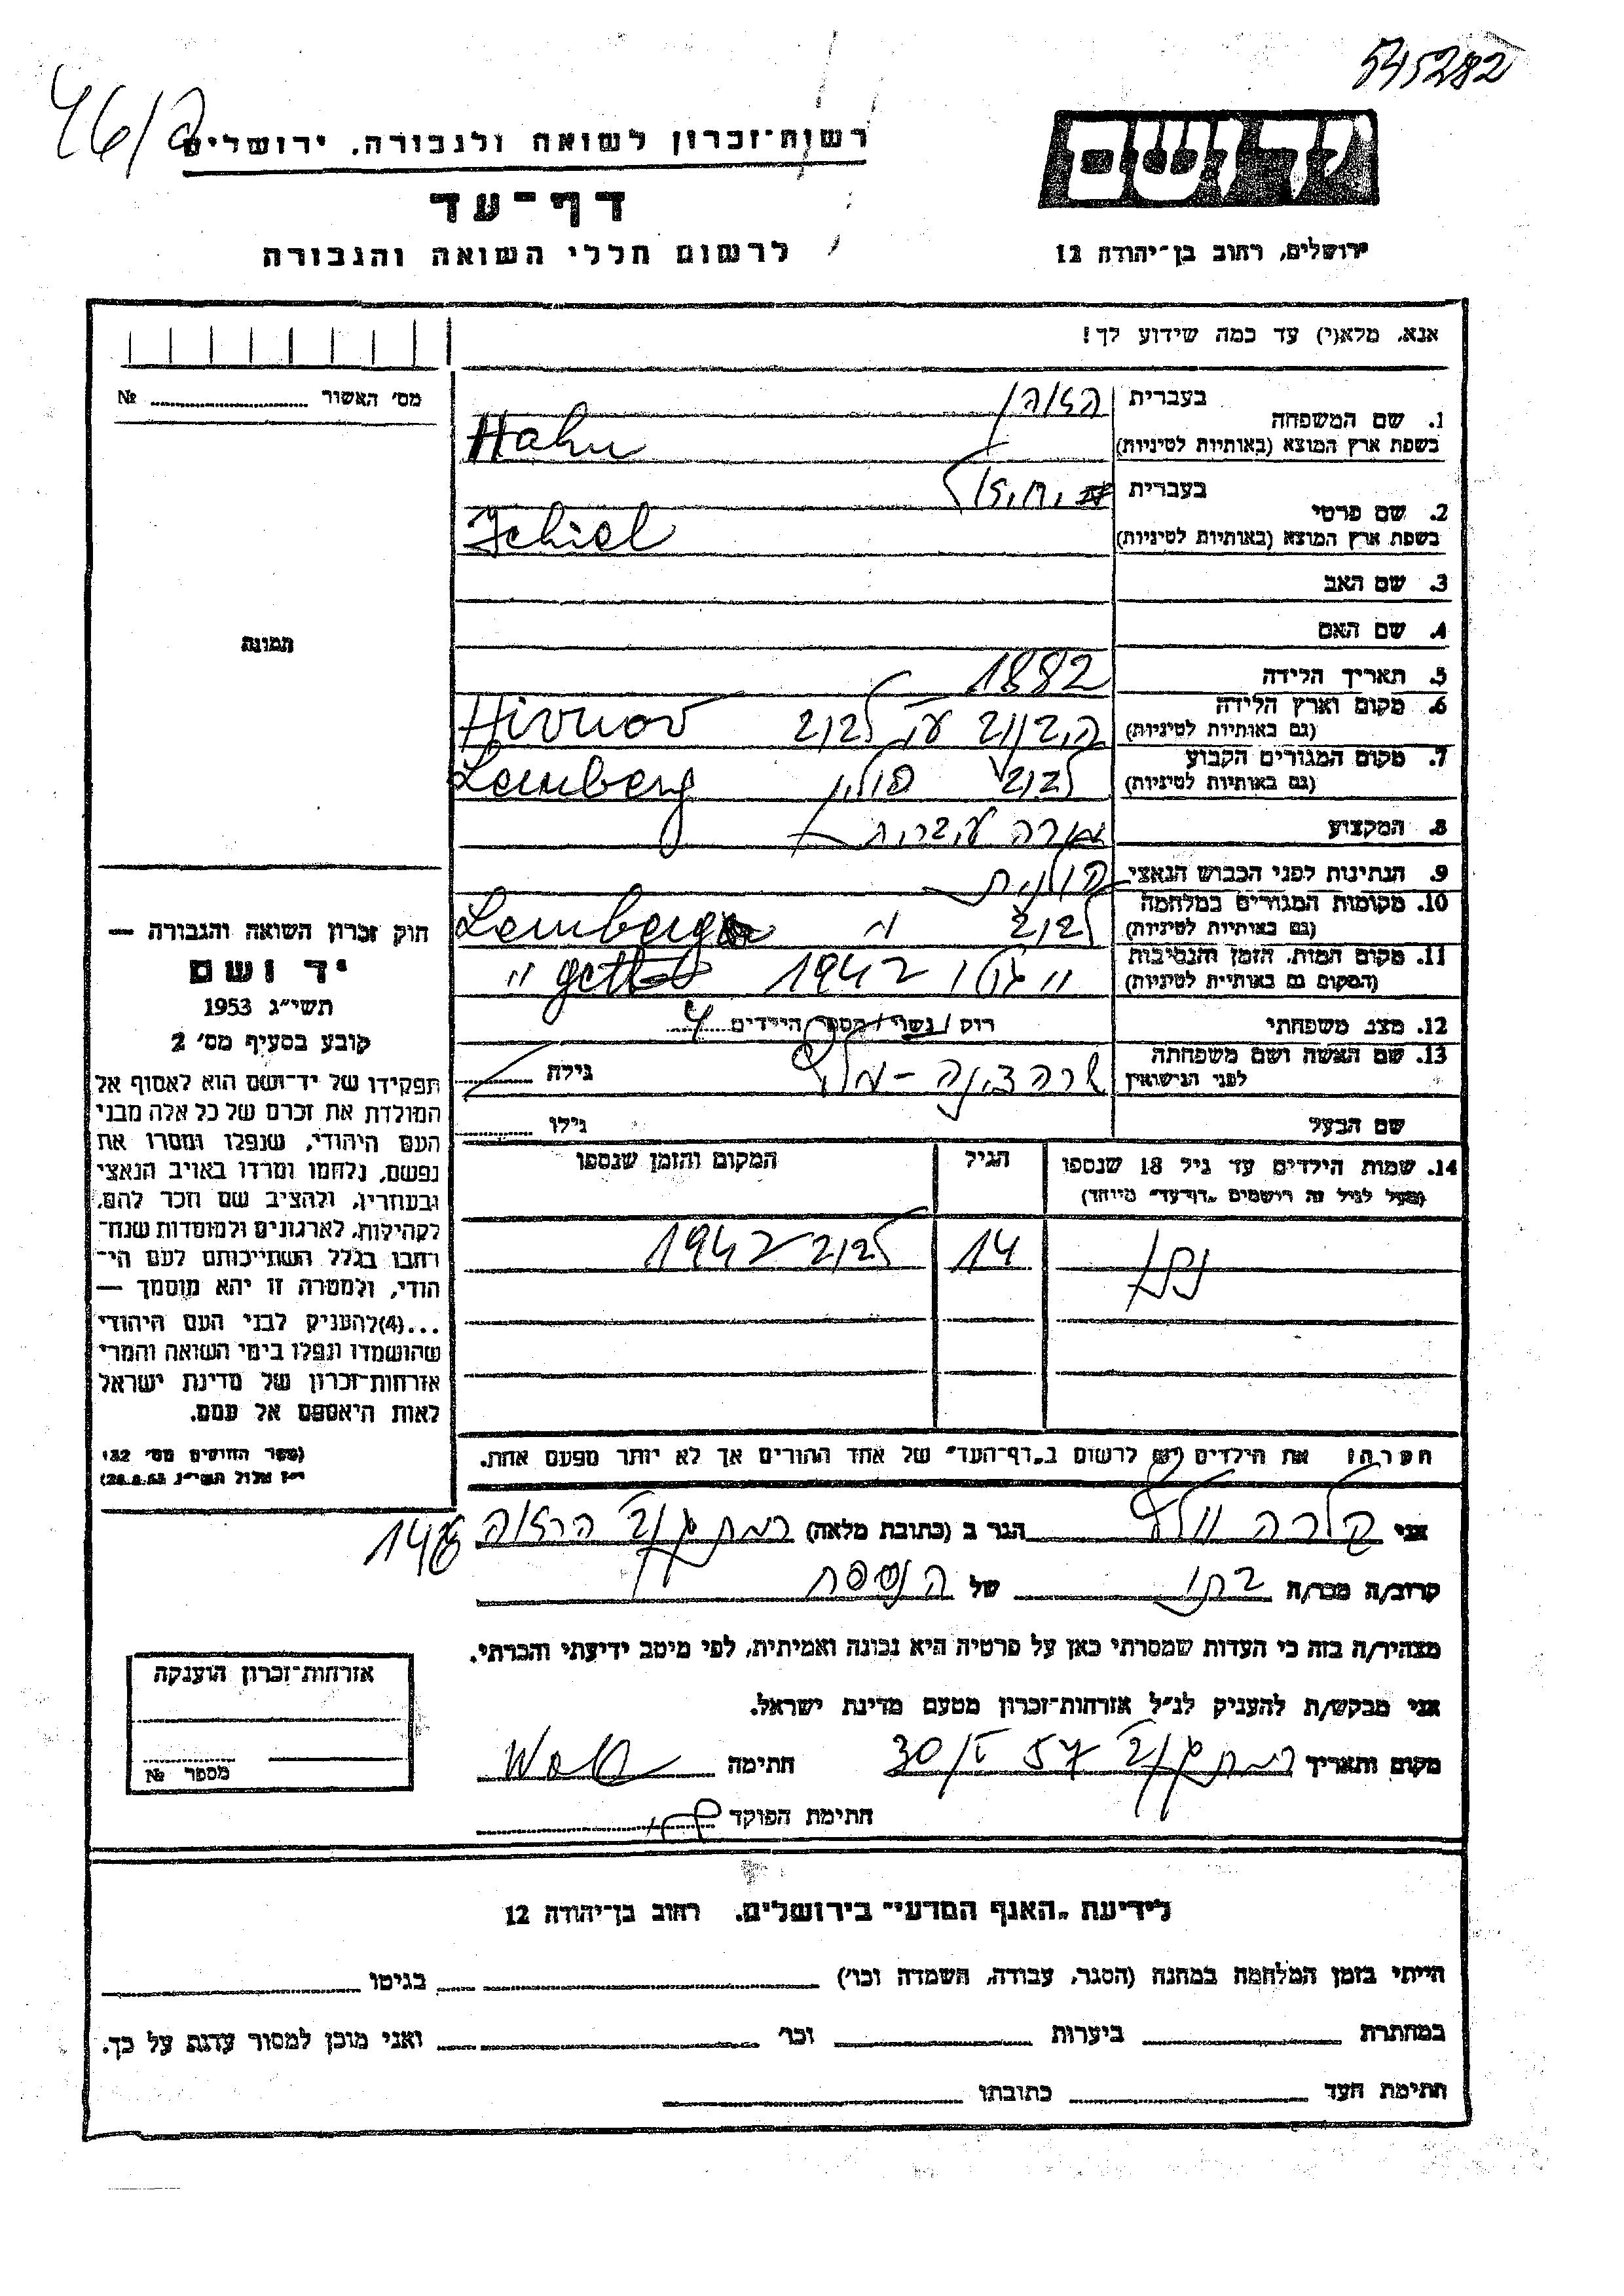 545282
46/2
רשות-זכרון לשואה ולגבורה, ירושלים
יד ושם
דף-עד
לרשום חללי השואה והגבורה
ירושלים, רחוב בן-יהודה 12
אנא, מלא(י) עד כמה שידוע לך!
מס' האשור № 
1. שם המשפחה
בעברית האהן
בשפת ארץ המוצא (באותיות לטיניות) Hahn
2. שם פרטי
בעברית יחיאל
בשפת ארץ המוצא (באותיות לטיניות) Jehiel
3. שם האב
4. שם האם
תמונה
5. תאריך הלידה 1882
6. מקום וארץ הלידה
(גם באותיות לטיניות) לבוב Hivnov
7. מקום המגורים הקבוע
(גם באותיות לטיניות) לבוב פולין Lemberg
8. המקצוע מורה עברית
9. הנתינות לפני הכבוש הנאצי פולנית
10. מקומות המגורים במלחמה
(גם באותיות לטיניות) לבוב " Lemberg
11. מקום המות, הזמן והנסיבות
(המקום גם באותיות לטיניות) " גטו 1942 " getto
12. מצב משפחתי רוק / נשוי / מספר הילדים 4
13. שם האשה ושם משפחתה
לפני הנישואין שרה גילה
שם הבעל גילו
14. שמות הילדים עד גיל 18 שנספו
(מעל לגיל זה רושמים "דף-עד" מיוחד)
הגיל
המקום והזמן שנספו
נתן 14 לבוב 1942
הערה: את הילדים יש לרשום ב"דף-העד" של אחד ההורים אך לא יותר מפעם אחת.
חוק זכרון השואה והגבורה —
יד ושם
תשי"ג 1953
קובע בסעיף מס' 2
תפקידו של יד-ושם הוא לאסוף אל
המולדת את זכרם של כל אלה מבני
העם היהודי, שנפלו ומסרו את
נפשם, נלחמו ומרדו באויב הנאצי
ובעוזריו, ולהציב שם וזכר להם,
לקהילות, לארגונים ולמוסדות שנח-
רבו בגלל השתייכותם לעם הי-
הודי, ולמטרה זו יהא מוסמך —
...(4) להעניק לבני העם היהודי
שהושמדו ונפלו בימי השואה והמרי
אזרחות-זכרון של מדינת ישראל
לאות היאספם אל עמם.
(ספר החוקים מס' 132
י"ז אלול תשי"ג 28.8.53)
אני קלרה וולף הגר ב (כתובת מלאה) רמת גן הרואה 146
קרוב/ה מכר/ה בתו של הנספה
מצהיר/ה בזה כי העדות שמסרתי כאן על פרטיה היא נכונה ואמיתית, לפי מיטב ידיעתי והכרתי.
אני מבקש/ת להעניק לנ"ל אזרחות-זכרון מטעם מדינת ישראל.
מקום ותאריך רמת גן 30/V 57 חתימה Wolf
חתימת הפוקד
אזרחות-זכרון הוענקה
מספר №
לידיעת "האגף המדעי" בירושלים, רחוב בן-יהודה 12
הייתי בזמן המלחמה במחנה (הסגר, עבודה, השמדה וכו') בגיטו
במחתרת ביערות וכו' ואני מוכן למסור עדות על כך.
חתימת העד כתובתו